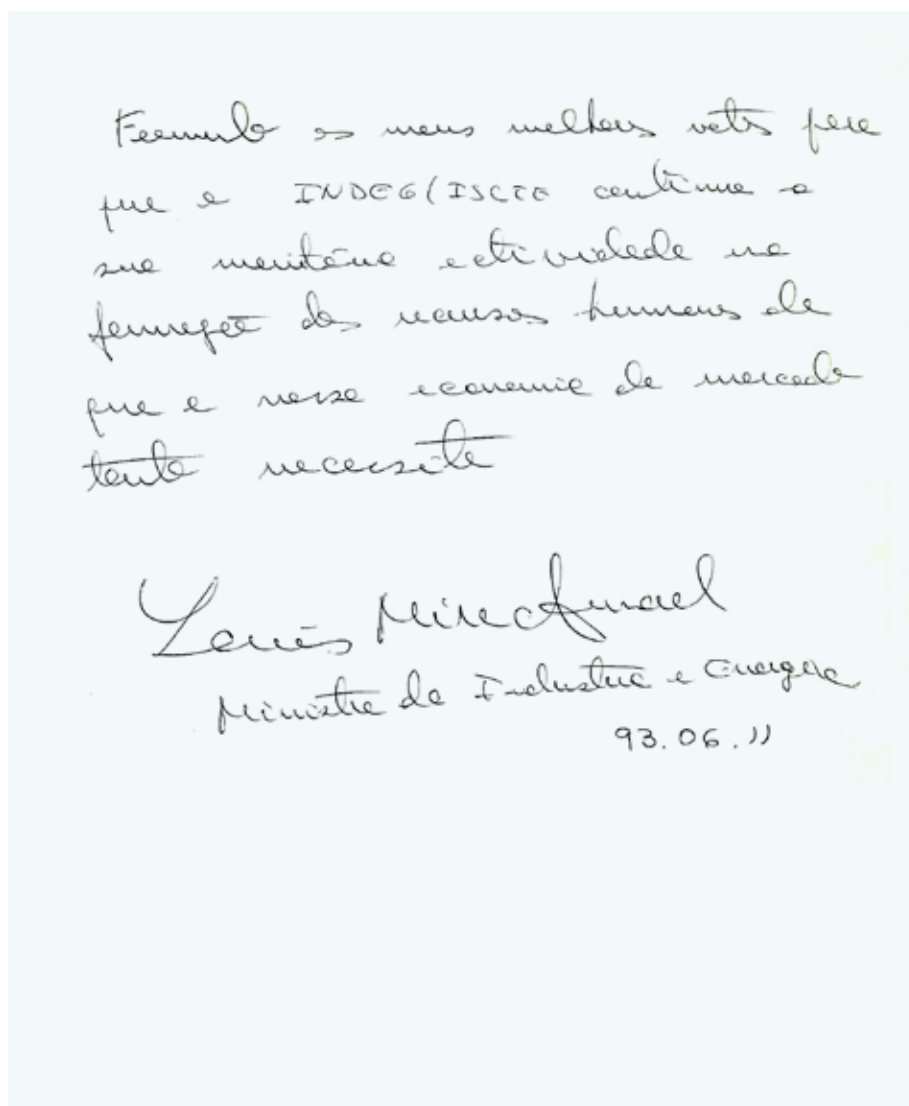 Formulo os meus melhores votos para
que o INDEG/ISCTE continue a
sua meritória actividade na
formação dos recursos humanos de
que a nossa economia de mercado
tanto necessita
Luís Mira Amaral
Ministro da Indústria e Energia
93.06.11